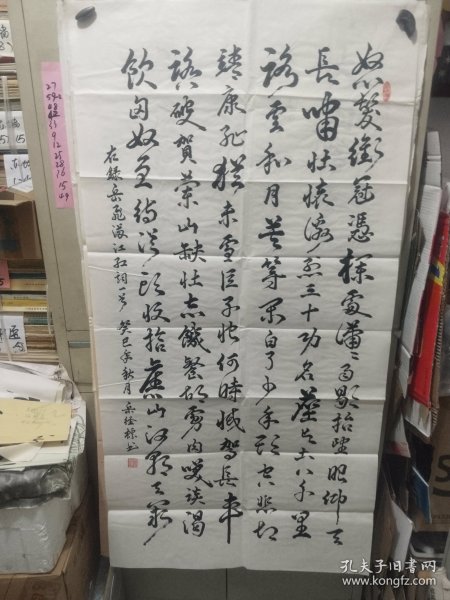 怒发冲冠凭栏处潇潇雨歇抬望眼仰天
长啸壮怀激烈三十功名尘与土八千里
路云和月莫等闲白了少年头空悲切
靖康耻犹未雪臣子恨何时灭驾长车
踏破贺兰山缺壮志饥餐胡虏肉笑谈渴
饮匈奴血待从头收拾旧山河朝天阙
右录岳飞满江红词一首 癸巳年秋月
27
59
9
12
25
28
26
15
49
孔夫子旧书网
www.kongfz.com